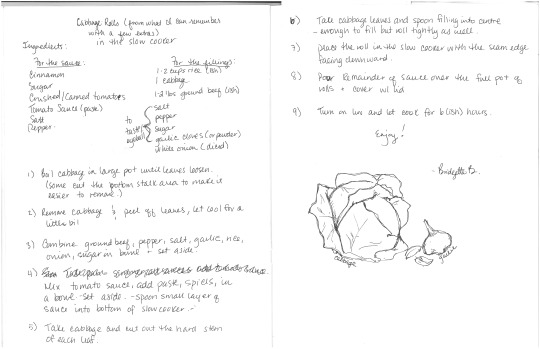 Cabbage Rolls (from what I can remember
with a few extras)
in the slow cooker
Ingredients:
For the sauce:
Cinnamon
Sugar
Crushed/Canned tomatoes
Tomato Sauce (paste)
Salt
Pepper
For the filling:
1-2 cups rice (ish)
1 cabbage
1-2 lbs ground beef (ish)
to
taste/
eyeball
salt
pepper
sugar
garlic cloves (or powder)
white onion (diced)
1) Boil cabbage in large pot until leaves loosen.
(some cut the bottom stalk area to make it
easier to remove.)
2) Remove cabbage & peel off leaves, let cool for a
little bit
3) Combine ground beef, pepper, salt, garlic, rice,
onion, sugar in bowl + set aside.
4)
Mix tomato sauce, add paste, spices, in
a bowl - set aside. - spoon small layer of
sauce into bottom of slow cooker.
5) Take cabbage and cut out the hard stem
of each leaf.
6) Take cabbage leaves and spoon filling into centre
- enough to fill but roll tightly as well.
7) place the roll in the slow cooker with the seam edge
facing downward.
8) Pour Remainder of sauce over the full pot of
rolls + cover w/ lid
9) Turn on low and let cook for 6(ish) hours.
Enjoy!
- Bridgette B.
cabbage
garlic